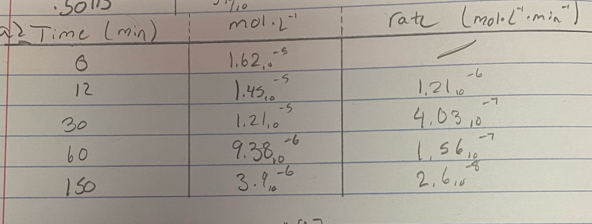 .5011S
Q2 Time (min) mol·L⁻¹ rate (mol·L⁻¹·min⁻¹)
0 1.62₁₀⁻⁵ —
12 1.45₁₀⁻⁵ 1.21₁₀⁻⁶
30 1.21₁₀⁻⁵ 4.03₁₀⁻⁷
60 9.38₁₀⁻⁶ 1.56₁₀⁻⁷
150 3.9₁₀⁻⁶ 2.6₁₀⁻⁸